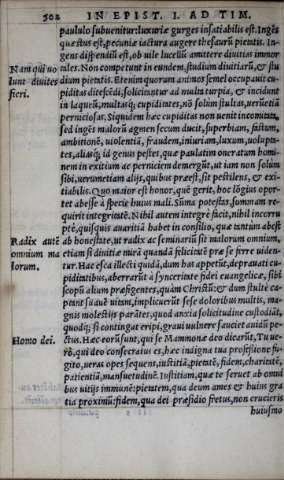 502 IN EPIST. I. AD TIM.
paululo subuenitur: luxuriæ gurges insatiabilis est. Ingēs
quæstus est, pecuniæ iactura augere thesaurū pietatis. In-
gens dispendiū est, ob uile lucellū amittere diuitias immor
Nam qui uo tales. Non competunt in eundem, studium diuitiarū, & stu
lunt diuites dium pietatis. Etenim quorum animos semel occupauit cu-
fieri. piditas ditescēdi, solicitātur ad multa turpia, & incidunt
in laqueū, multasq; cupiditates, nō solum stultas, uerūetiā
perniciosas. Siquidem hæc cupiditas non uenit incomitata,
sed ingēs malorū agmen secum ducit, superbiam, fastum,
ambitionē, uiolentiā, fraudem, iniuriam, luxum, uolupta-
tes, aliasq; id genus pestes, quæ paulatim oneratum homi-
nem in exitium ac perniciem demergūt, ut iam non solum
sibi, uerumetiam alijs, quibus præest, sit pestilens, & exi-
tiabilis. Quo maior est honor, quē gerit, hoc lōgius opor-
tet abesse à specie huius mali. Suma potestas, summam re-
quirit integritatē. Nihil autem integrè facit, nihil incorru
ptè, quisquis auaritiā habet in consilio, quæ tantum abest
Radix autē ab honestate, ut radix ac seminariū sit malorum omnium,
omnium ma etiam si diuitiæ mira quandā felicitatē præ se ferre uiden-
lorum. tur. Hac esca illecti quidā, dum has appetūt, deprauati cu-
piditatibus, aberrarūt à synceritate fidei euangelicæ, sibi
scopū alium præfigentes, quàm Christū: & dum stulte ca-
ptant suauē uitam, implicuerūt sese doloribus multis, ma-
gnis molestijs parātes, quod anxia solicitudine custodiāt,
quodq; si contingat eripi, graui uulnere sauciet auidū pe-
Homo dei. ctus. Hæc eorū sunt, qui se Mammonæ deo dicarūt, Tu ue-
rò, qui deo consecratus es, hæc indigna tua professione fu-
gito, ueras opes sequens, iustitiā, pietatē, fidem, charitatē,
patientiā, mansuetudinē. Iustitiam, quæ te seruet ab omni
bus uitijs immunē: pietatem, qua deum ames & huius gra
tia proximū: fidem, qua dei præsidio fretus, non crucieris
huiusmo